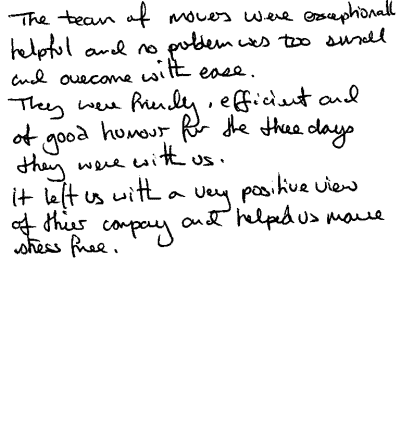 The team of movers were exceptionall
helpful and no problem was too small
and overcome with ease.
They were friendly, efficient and
of good humour for the three days
they were with us.
it left us with a very positive view
of this company and helped us move
stress free.